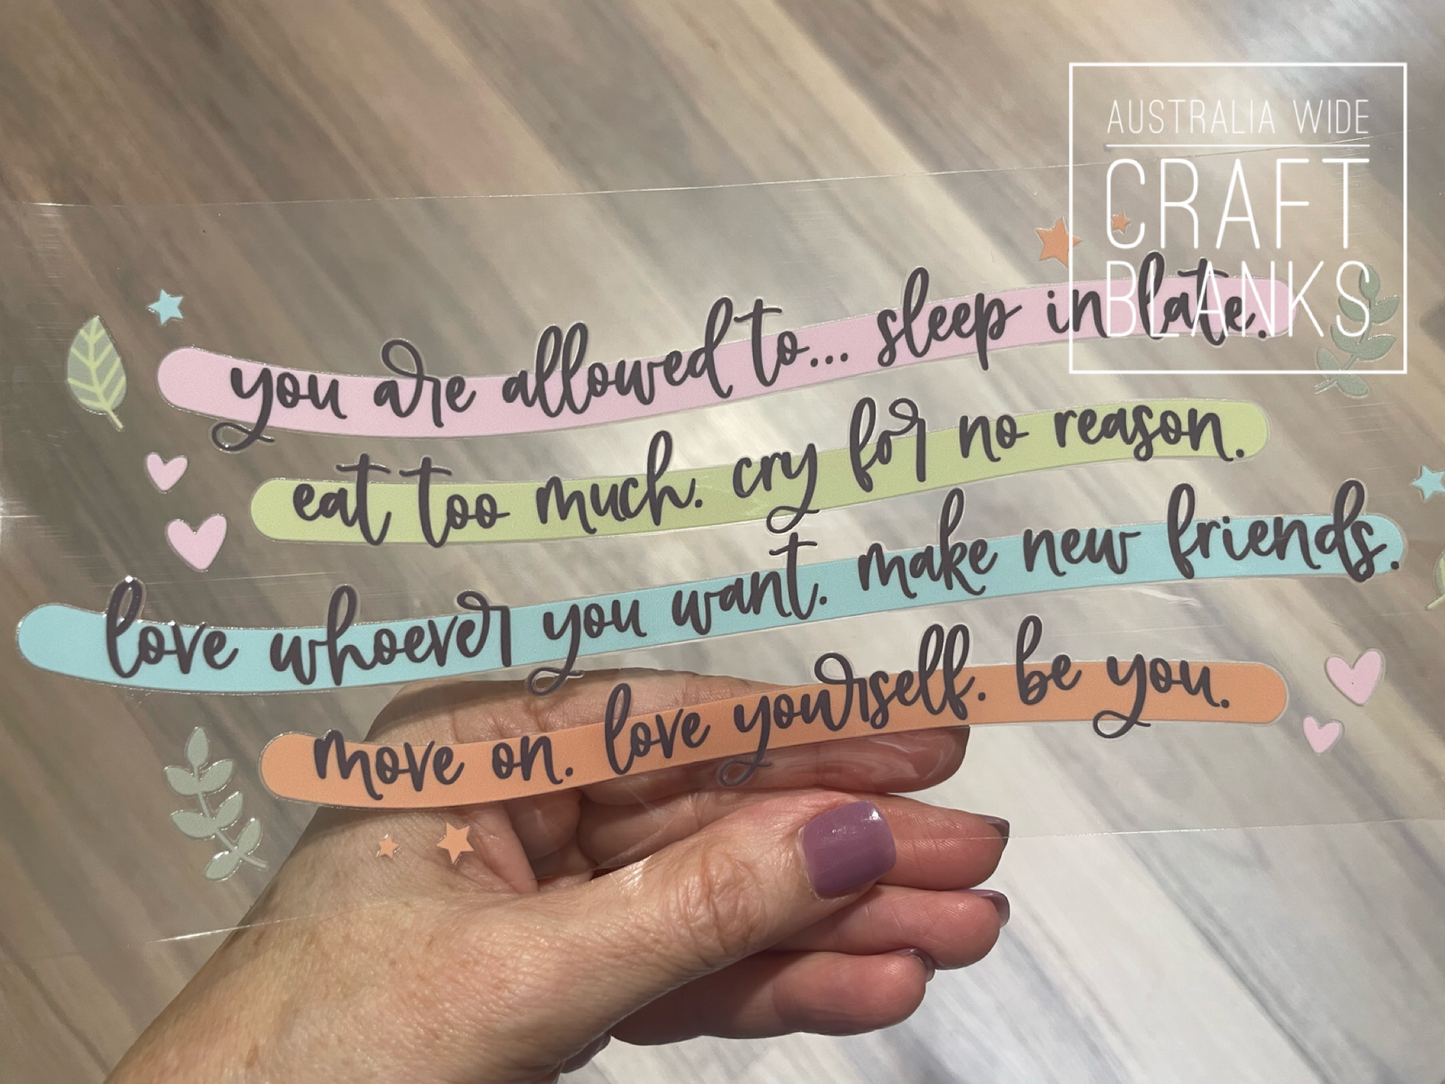 AUSTRALIA WIDE
CRAFT
BLANKS
you are allowed to... sleep in late.
eat too much. cry for no reason.
love whoever you want. make new friends.
move on. love yourself. be you.